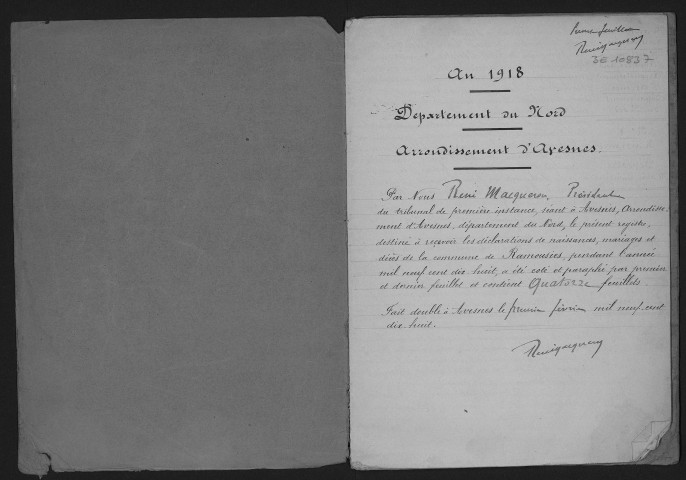 Premier feuillet
3E 10837
An 1918
Département du Nord
Arrondissement d'Avesnes.
Par Nous René Macqueron, Président
du tribunal de première instance, séant à Avesnes, Arrondisse-
ment d'Avesnes, département du Nord, le présent registre,
destiné à recevoir les déclarations de naissances, mariages et
décès de la commune de Ramousies, pendant l'année
mil neuf cent dix huit, a été coté et paraphé par premier
et dernier feuillet et contient Quatorze feuillets.
Fait double à Avesnes le premier février mil neuf cent
dix huit.